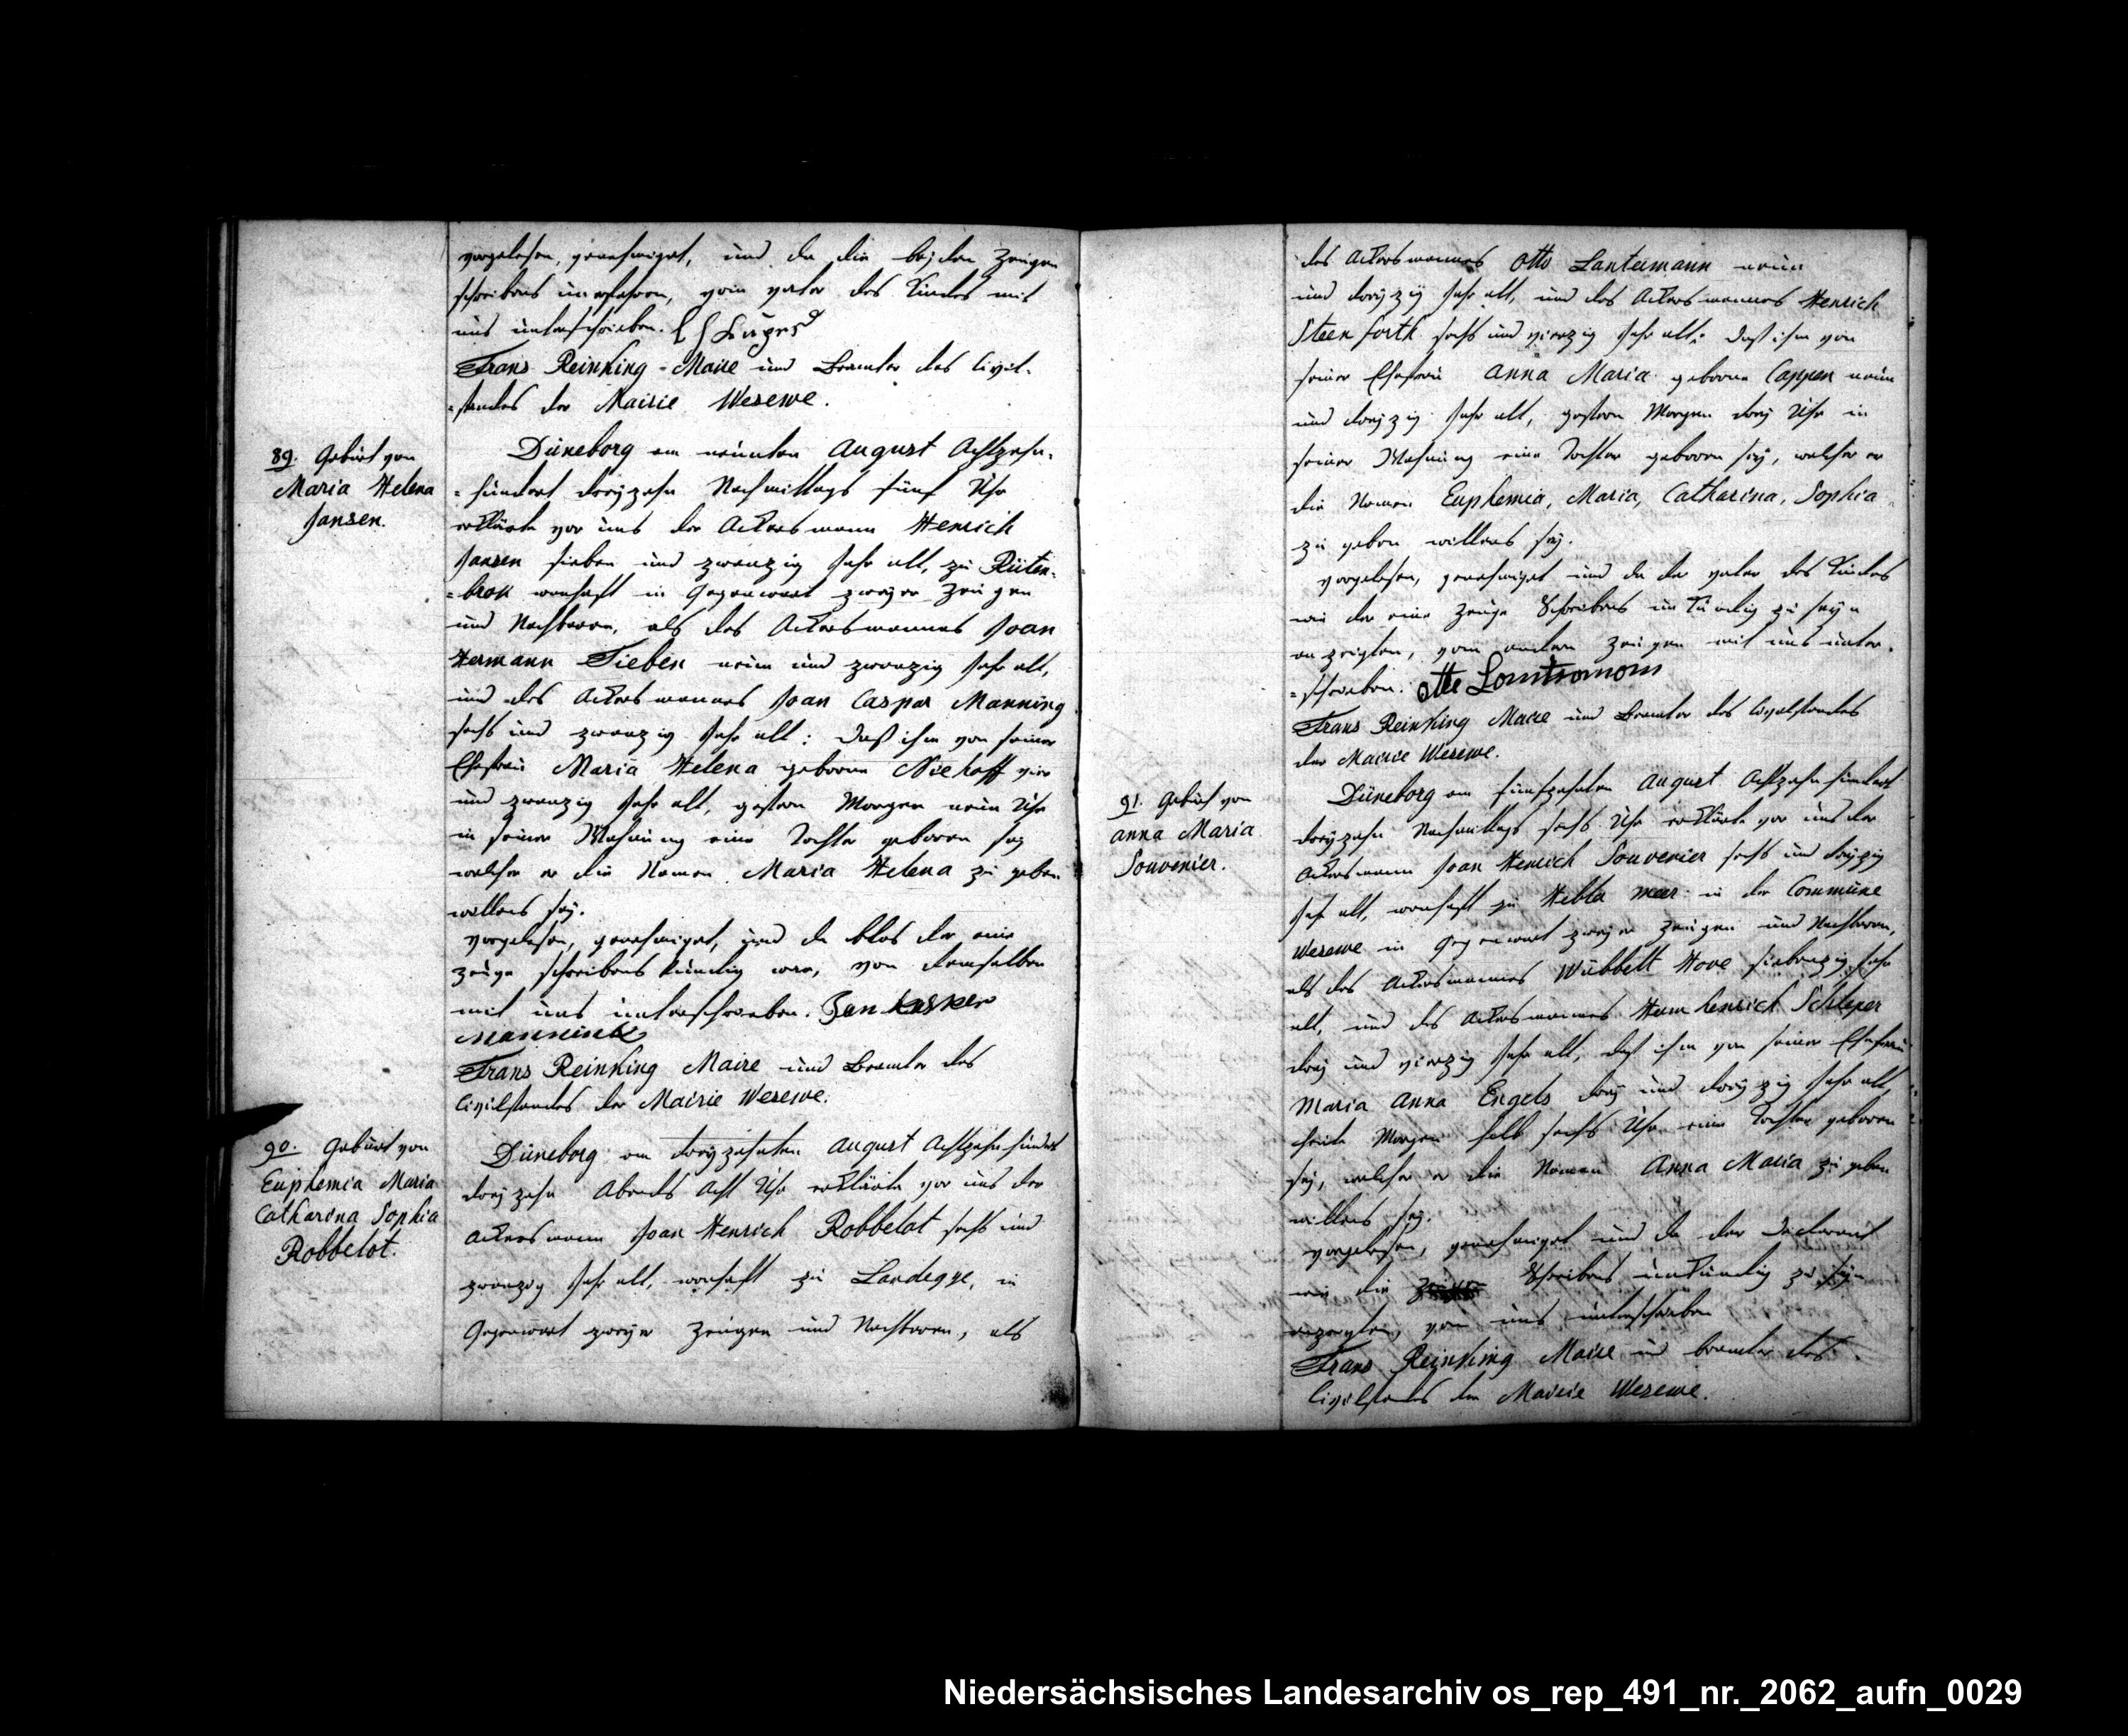 vorgelesen, genehmiget, und da die beiden Zeugen
schreibens unerfahren, vom vater des Kindes mit
uns unterschrieben.
Frans Reinking - Maire und Beamter des Civil-
=standes der Mairie Wesewe.
89. Geburt von
Maria Helena
Jansen.
Düneborg am neunten August Achtzehn-
=hundert dreyzehn Nachmittags fünf Uhr
erklärte vor uns der Ackersmann Henrich
Jansen sieben und zwanzig Jahr alt, zu Rüten-
=brok wonhaft in Gegenwart zweyer Zeugen
und Nachbaren, als des Ackersmannes Joan
Hermann Tieben neun und zwanzig Jahr alt,
und des Ackersmannes Joan Caspar Manning
sechs und zwanzig Jahr alt: Daß ihm von seiner
Ehefrau Maria Helena geborne Niehoff vier
und zwanzig Jahr alt, gestern Morgen neun Uhr
in seiner Wohnung eine Tochter geboren sey
welcher er die Namen Maria Helena zu geben
willens sey.
vorgelesen, genehmiget, und da blos der eine
Zeuge schreibens kündig war, von demselben
mit uns unterschrieben. Jan Kasper
Manninck
Frans Reinking Maire und Beamter des
Civilstandes der Mairie Wesewe.
90. Geburt von
Euphemia Maria
Catharina Sophia
Robbelot.
Düneborg am dreyzehnten August Achtzehnhundert
dreyzehn Abends Acht Uhr erklärte vor uns der
Ackersmann Joan Henrich Robbelot sechs und
zwanzig Jahr alt, wonhaft zu Landegge, in
Gegenwart zweyer Zeugen und Nachbaren, als
des Ackersmannes Otto Lantermann neun
und dreyzig Jahr alt, und des Ackersmannes Henrich
Steenforth sechs und vierzig Jahr alt: Daß ihm von
seiner Ehefrau Anna Maria geborne Cappen neun
und dreyzig Jahr alt, gestern Morgen drey Uhr in
seiner Wohnung eine Tochter geboren sey, welcher er
die Namen Euphemia, Maria, Catharina, Sophia
zu geben willens sey.
vorgelesen, genehmiget und da der vater des Kindes
wie der eine Zeuge Schreibens unkündig zu seyn
anzeigten, vom andern Zeugen mit uns unter-
=schrieben. otto Lomtromom
Frans Reinking Maire und Beamter des Civilstandes
der Mairie Wesewe.
91. Geburt von
Anna Maria
Souvenier.
Düneborg am fünfzehnten August Achtzehnhundert
dreyzehn Nachmittags sechs Uhr erklärte vor uns der
Ackersmann Joan Henrich Souvenier sechs und dreyzig
Jahr alt, wonhaft zu Hebla meer in der Commüne
Wesewe in Gegenwart zweyer Zeugen und Nachbaren,
als des Ackersmannes Wübbelt Hove siebenzig Jahr
alt, und des Ackersmannes Herm henrich Schleper
drey und vierzig Jahr alt, daß ihm von seiner Ehefrau
Maria Anna Engels drey und dreyzig Jahr alt,
heute Morgen halb sechs Uhr eine Tochter geboren
sey, welcher er die Namen Anna Maria zu geben
willens sey.
vorgelesen, genehmiget und da der Declarant
wie die Schreibens unkündig zu seyn
anzeigten, von uns unterschrieben
Frans Reinking Maire und Beamter des
Civilstandes der Mairie Wesewe.
Niedersächsisches Landesarchiv os_rep_491_nr._2062_aufn_0029